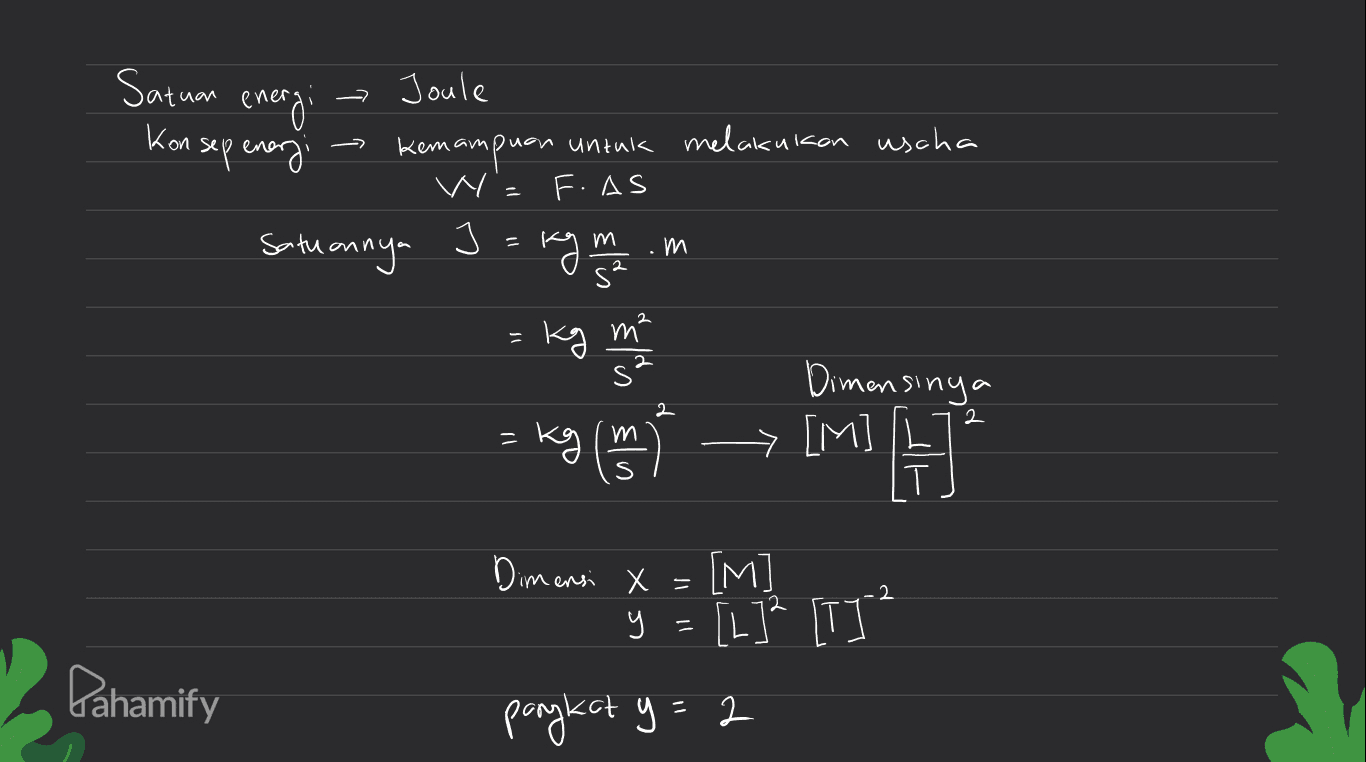 Satuan energi → Joule
Konsep energi → kemampuan untuk melakukan usaha
W = F. ΔS
Satuannya J = kg m/s² . m
= kg m²/s²
Dimensinya
= kg (m/s)² → [M] [L/T]²
Dimensi x = [M]
y = [L]² [T]⁻²
Pahamify
pangkat y = 2